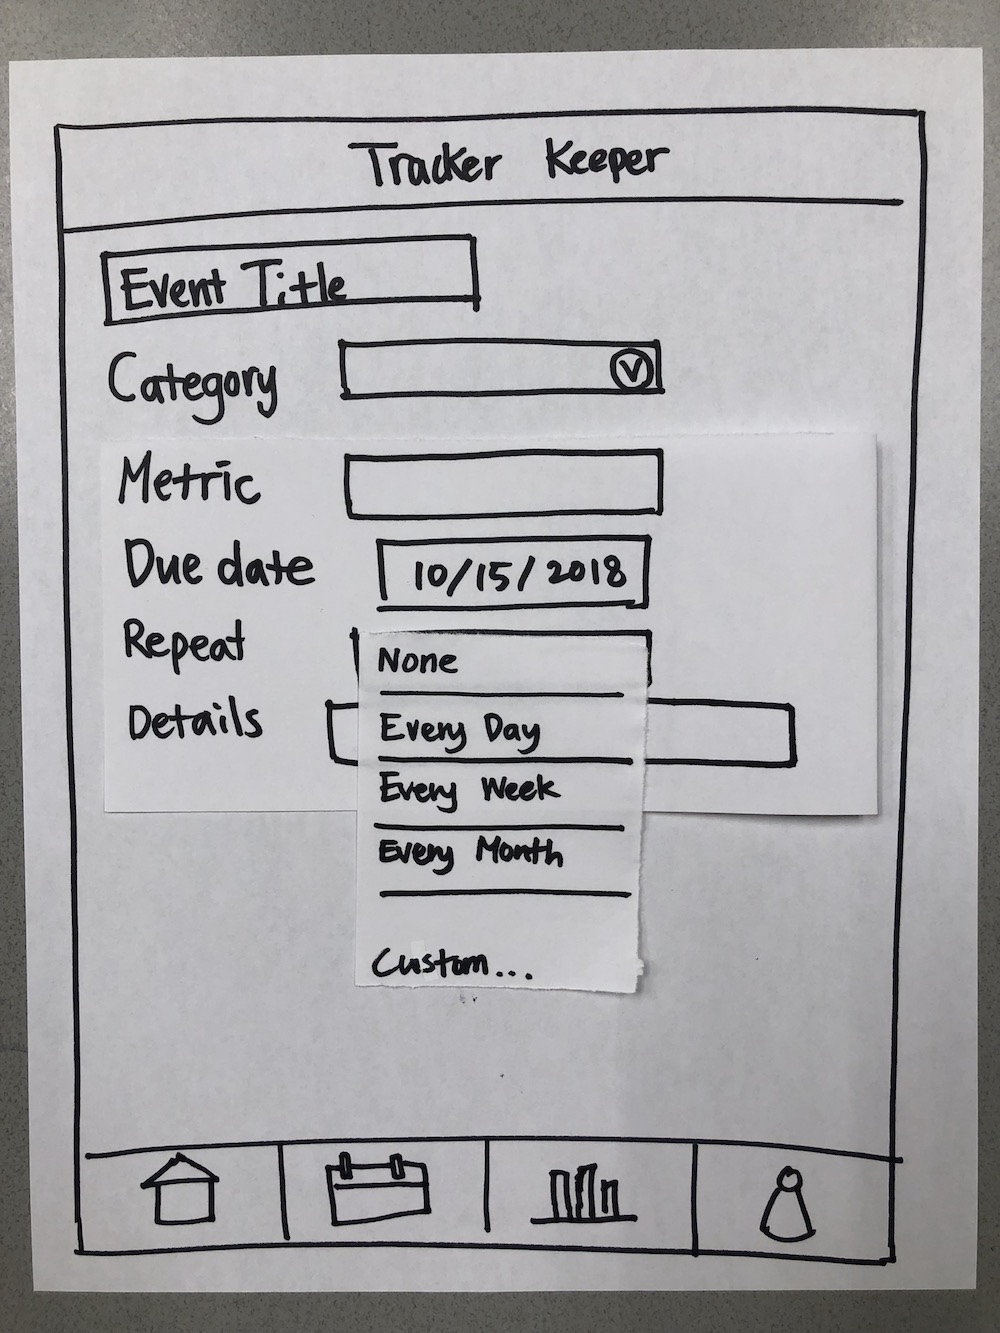 Tracker Keeper
Event Title
Category
Metric
Due date 10/15/2018
Repeat None
Details Every Day
Every Week
Every Month
Custom...